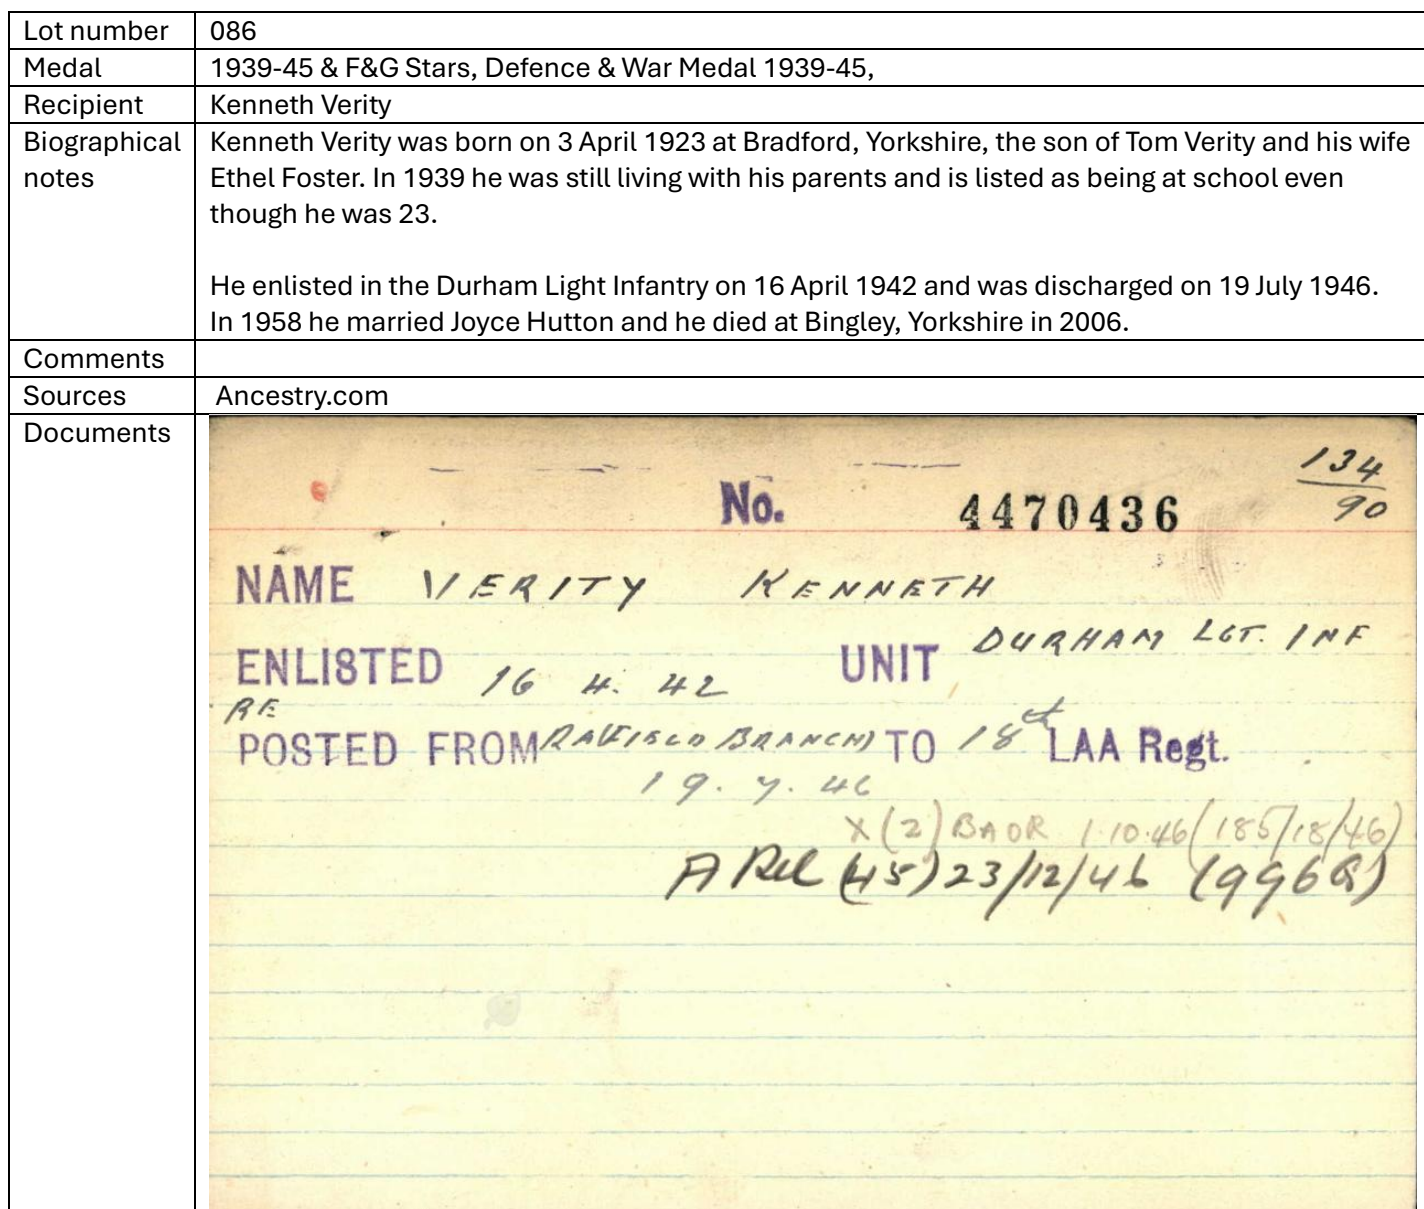 Lot number 086
Medal 1939-45 & F&G Stars, Defence & War Medal 1939-45,
Recipient Kenneth Verity
Biographical notes
Kenneth Verity was born on 3 April 1923 at Bradford, Yorkshire, the son of Tom Verity and his wife
Ethel Foster. In 1939 he was still living with his parents and is listed as being at school even
though he was 23.
He enlisted in the Durham Light Infantry on 16 April 1942 and was discharged on 19 July 1946.
In 1958 he married Joyce Hutton and he died at Bingley, Yorkshire in 2006.
Comments
Sources Ancestry.com
Documents
134
90
No. 4470436
NAME VERITY KENNETH
ENLISTED 16 4. 42 UNIT DURHAM LGT. INF
RE
POSTED FROM RA(FIELD BRANCH) TO 18th LAA Regt.
19. 7. 46
X(2) BAOR 1.10.46 (185/18/46)
A Rel (45) 23/12/46